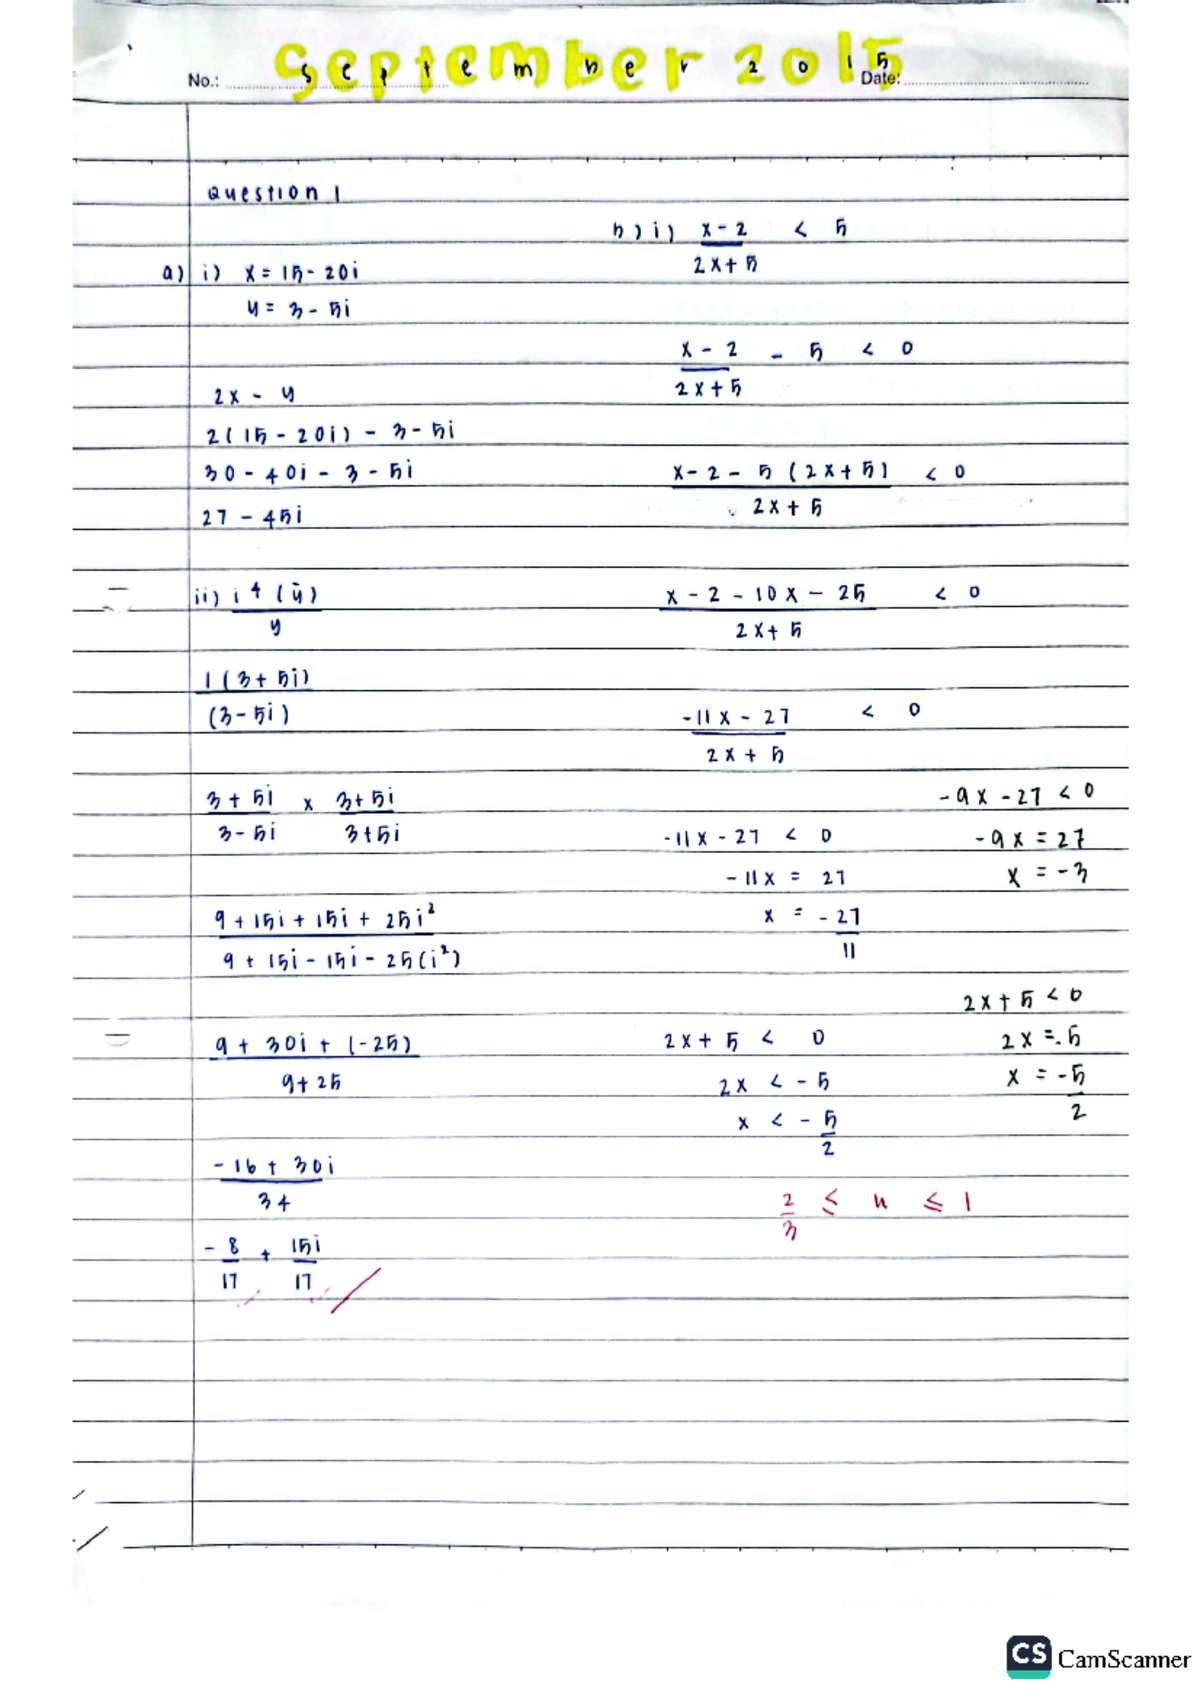 September 2015
No.: September 2015 Date:
Question 1
a) i) x = 15 - 20i
y = 3 - 5i
2x - y
2(15 - 20i) - 3 - 5i
30 - 40i - 3 - 5i
27 - 45i
ii) i⁴ (ȳ)
y
1(3 + 5i)
(3 - 5i)
3 + 5i x 3 + 5i
3 - 5i 3 + 5i
9 + 15i + 15i + 25i²
9 + 15i - 15i - 25(i²)
9 + 30i + (-25)
9 + 25
-16 + 30i
34
- 8 + 15i
17 17
b) i) x - 2 < 5
2x + 5
x - 2 - 5 < 0
2x + 5
x - 2 - 5 (2x + 5) < 0
2x + 5
x - 2 - 10x - 25 < 0
2x + 5
-11x - 27 < 0
2x + 5
-11x - 27 < 0
-11x = 27
x = - 27
11
2x + 5 < 0
2x < - 5
x < - 5
2
-9x - 27 < 0
-9x = 27
x = -3
2x + 5 < 0
2x = -5
x = -5
2
2 ≤ x ≤ 1
3
CS CamScanner